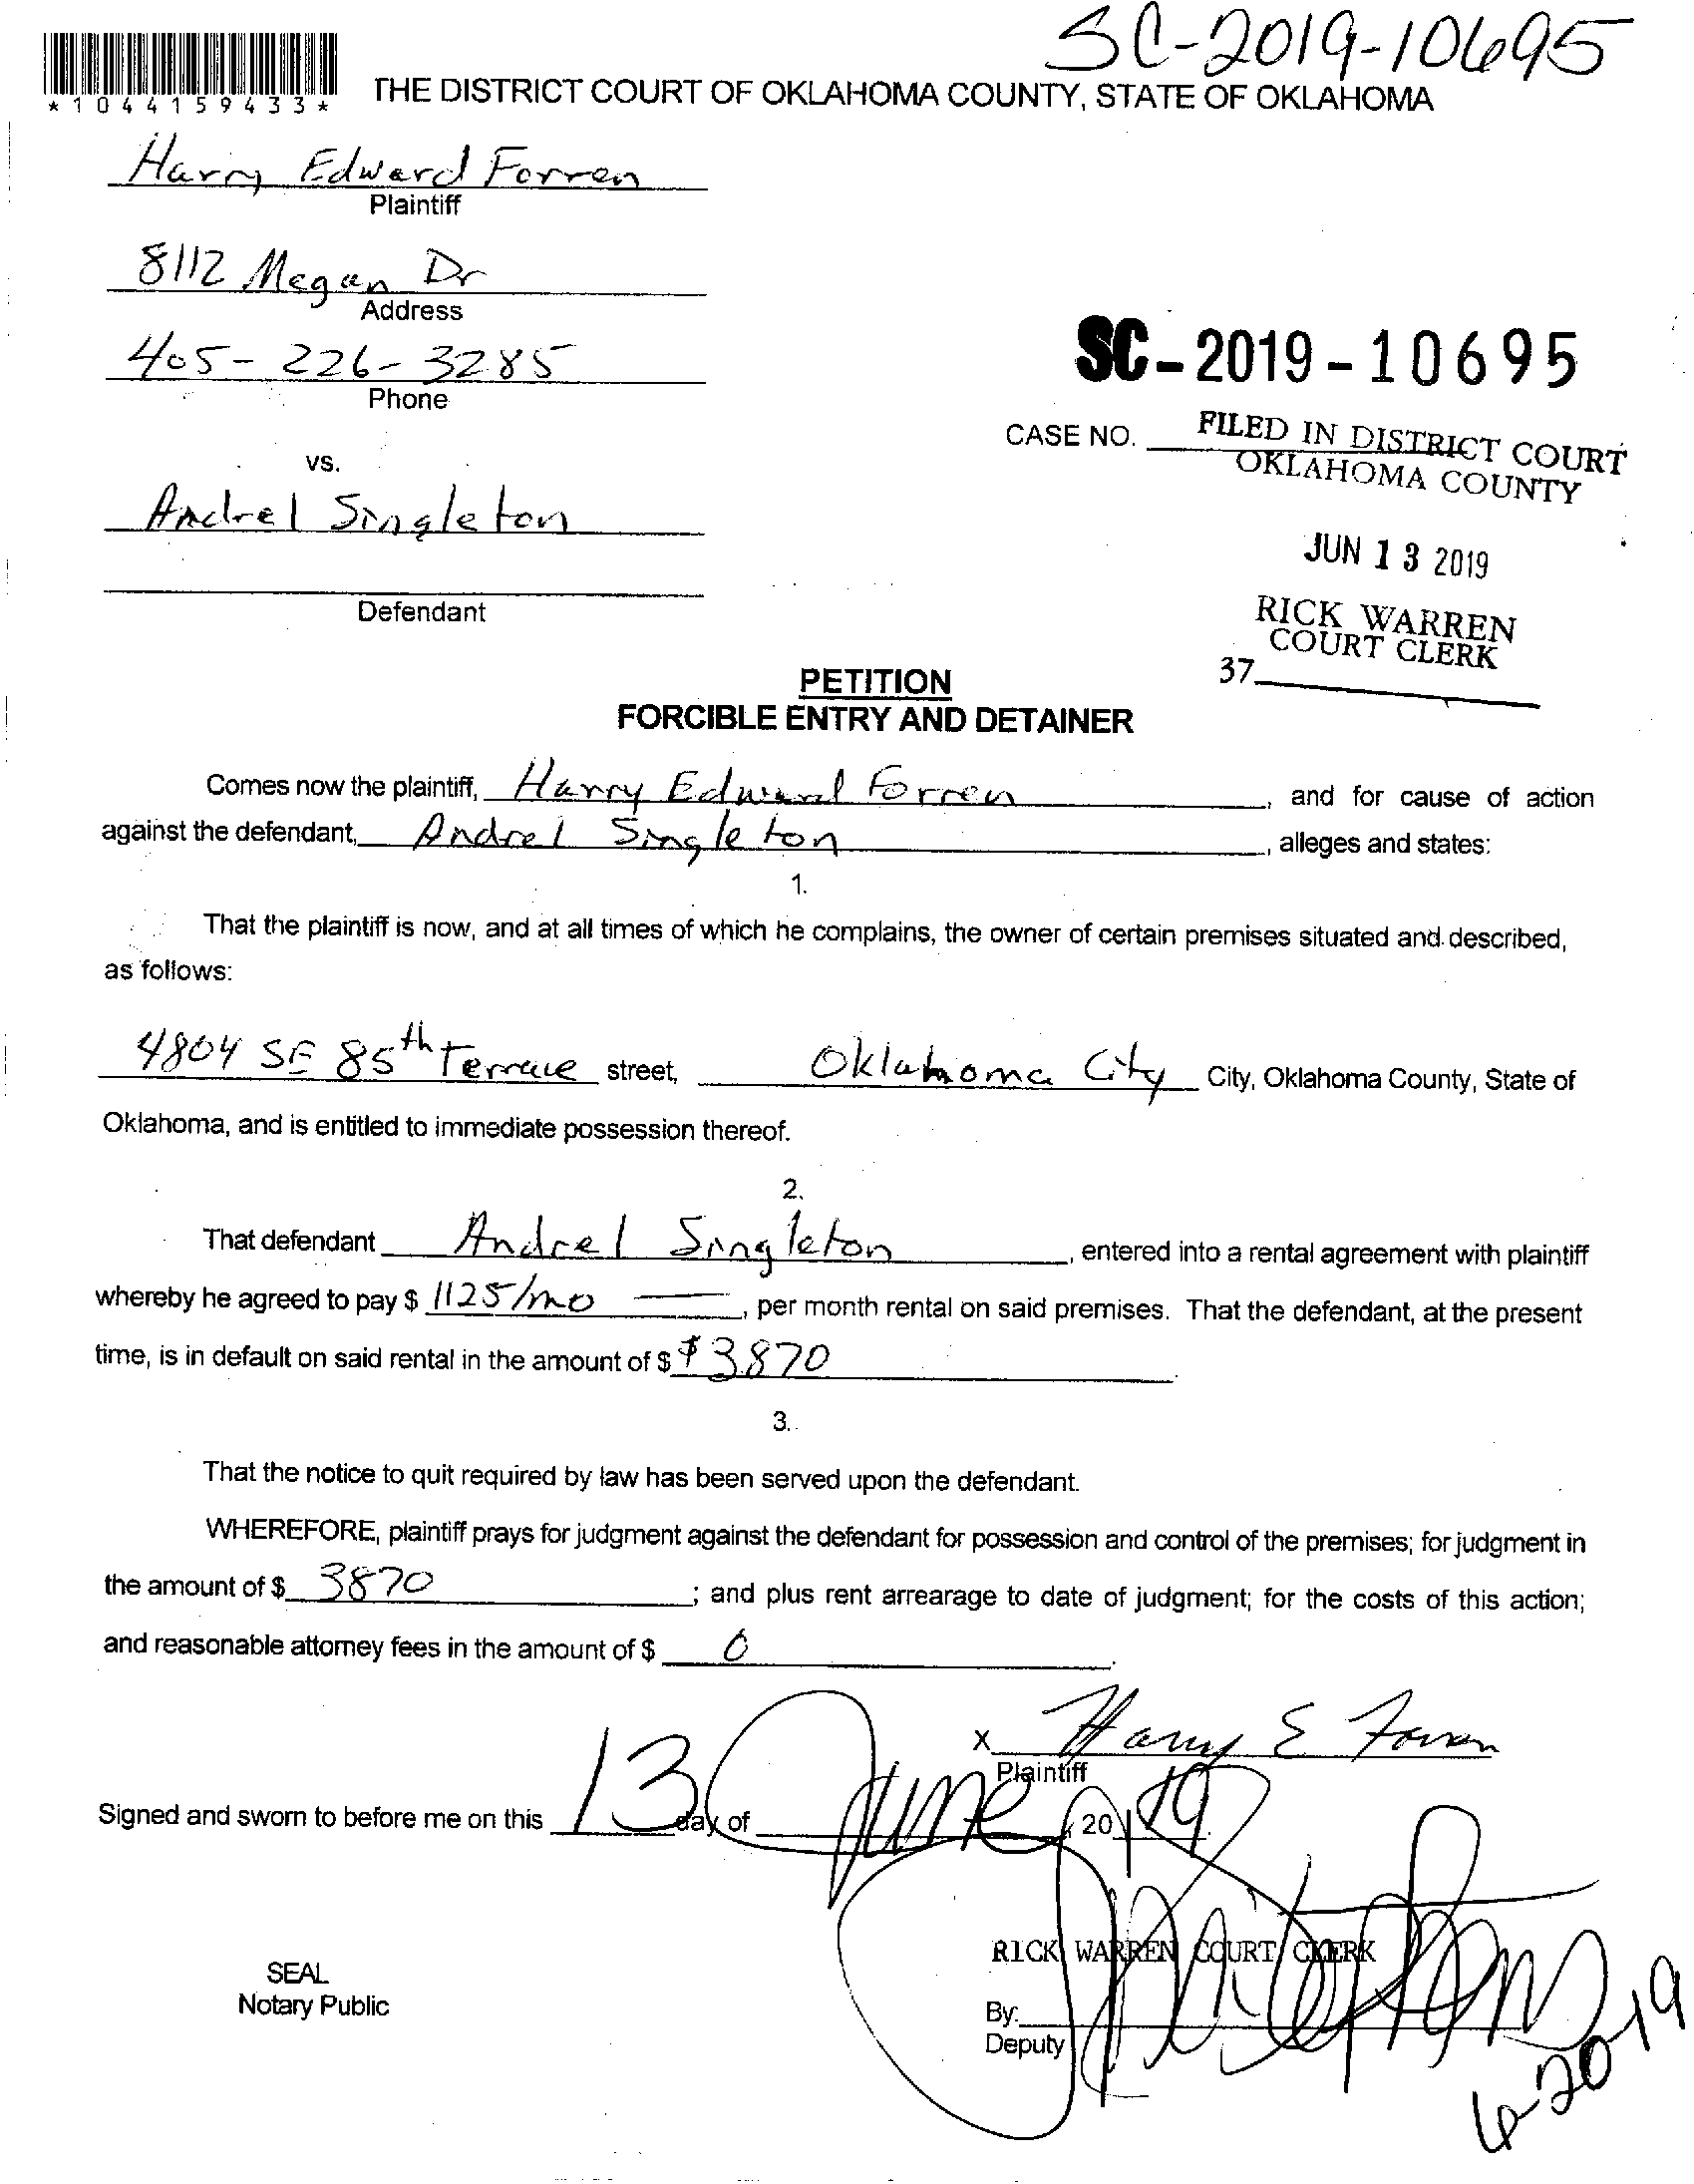 SC-2019-10695
*1044159433*
THE DISTRICT COURT OF OKLAHOMA COUNTY, STATE OF OKLAHOMA
Harry Edward Forren
Plaintiff
8112 Megan Dr
Address
405-226-3285
Phone
SC-2019-10695
CASE NO.
FILED IN DISTRICT COURT
OKLAHOMA COUNTY
vs.
Andrel Singleton
JUN 13 2019
Defendant
RICK WARREN
COURT CLERK
37
PETITION
FORCIBLE ENTRY AND DETAINER
Comes now the plaintiff, Harry Edward Forren, and for cause of action
against the defendant, Andrel Singleton, alleges and states:
1.
That the plaintiff is now, and at all times of which he complains, the owner of certain premises situated and described,
as follows:
4804 SE 85th Terrace street, Oklahoma City City, Oklahoma County, State of
Oklahoma, and is entitled to immediate possession thereof.
2.
That defendant Andrel Singleton, entered into a rental agreement with plaintiff
whereby he agreed to pay $ 1125/mo —, per month rental on said premises. That the defendant, at the present
time, is in default on said rental in the amount of $ $3870.
3.
That the notice to quit required by law has been served upon the defendant.
WHEREFORE, plaintiff prays for judgment against the defendant for possession and control of the premises; for judgment in
the amount of $ 3870; and plus rent arrearage to date of judgment; for the costs of this action;
and reasonable attorney fees in the amount of $ 0.
X Harry E Forren
Plaintiff
Signed and sworn to before me on this 13 day of June, 2019.
RICK WARREN COURT CLERK
SEAL
Notary Public
By:
Deputy
6-20-19